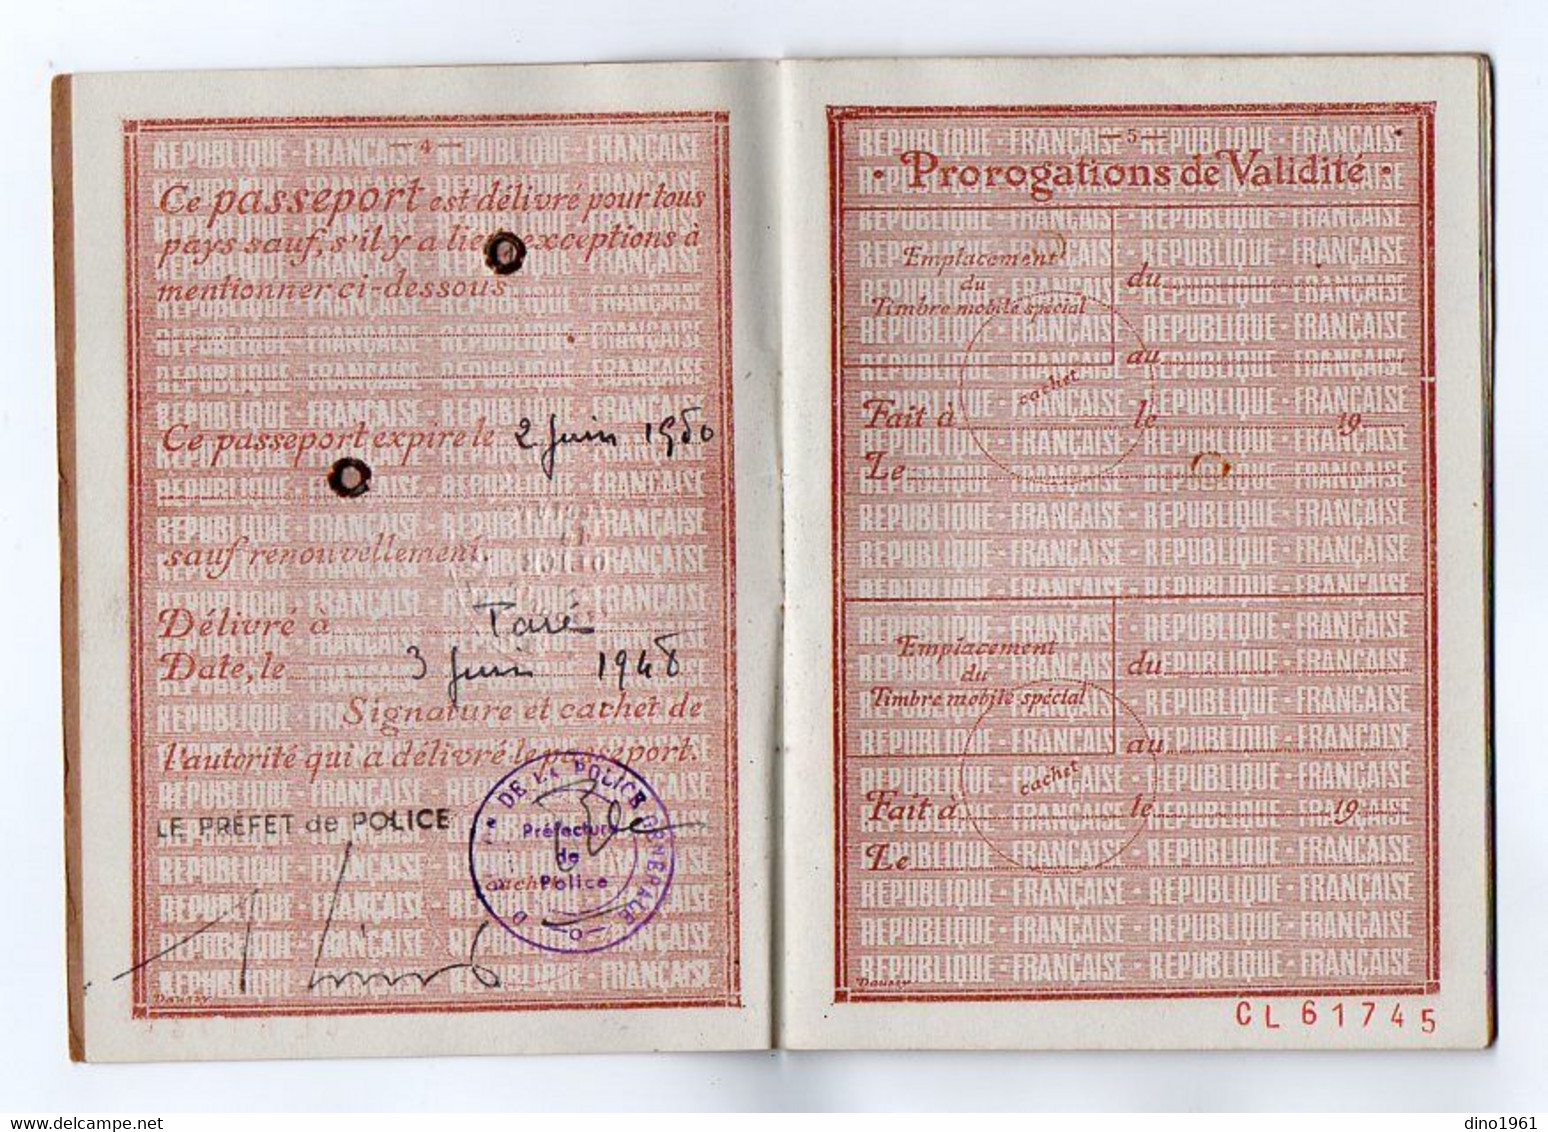 — 4 —
Ce passeport est délivré pour tous
pays sauf, s'il y a lieu exceptions à
mentionner ci-dessous
Ce passeport expire le 2 Juin 1950
sauf renouvellement.
Délivré à Paris
Date, le 3 Juin 1948
Signature et cachet de
l'autorité qui a délivré le passeport.
LE PRÉFET de POLICE
DE LA POLICE GÉNÉRALE
Préfecture
de
Police
Daussy
— 5 —
· Prorogations de Validité ·
Emplacement
du
Timbre mobile spécial
du
au
cachet
Fait à le 19
Le
Emplacement
du
Timbre mobile spécial
du
au
cachet
Fait à le 19
Le
Daussy
CL 61745
RÉPUBLIQUE - FRANÇAISE - RÉPUBLIQUE - FRANÇAISE
dino1961